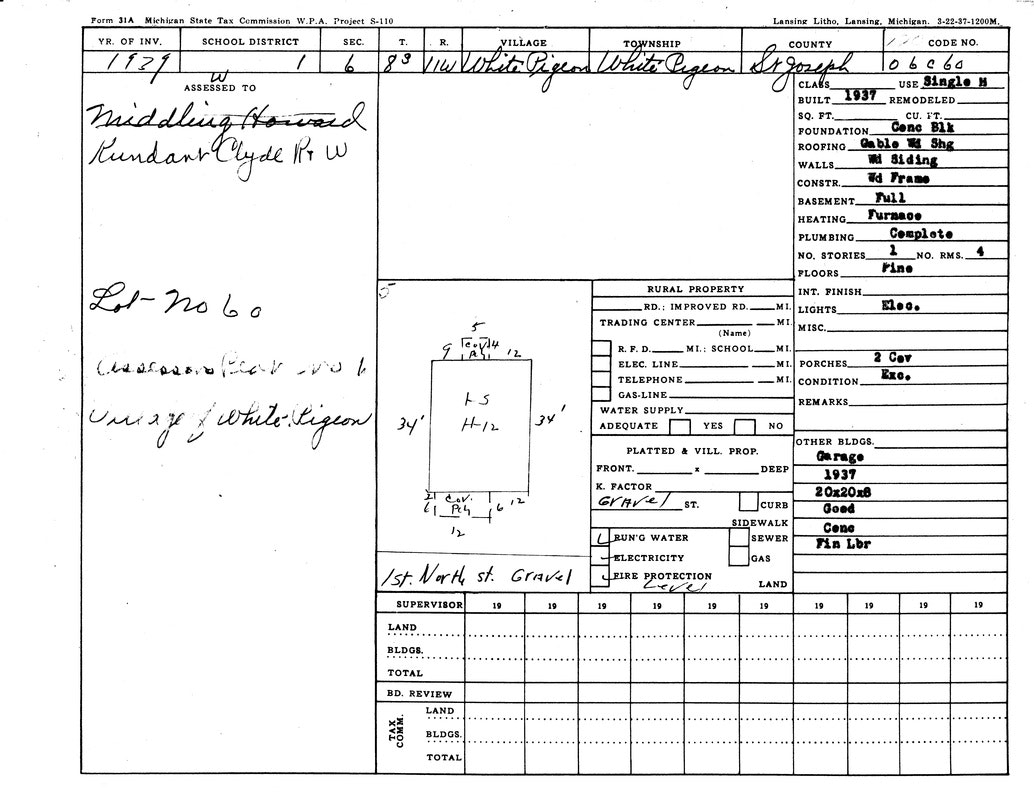 Form 31A Michigan State Tax Commission W.P.A. Project S-110
Lansing Litho, Lansing, Michigan. 3-22-37-1200M.
YR. OF INV. SCHOOL DISTRICT SEC. T. R. VILLAGE TOWNSHIP COUNTY CODE NO.
1939 1 6 8S 11W White Pigeon White Pigeon St Joseph 06C60
W
ASSESSED TO
Middling Howard
Rundant Clyde R+ W
Lot - No 60
Assessors Plat No 1
Village of White Pigeon
CLASS USE Single H
BUILT 1937 REMODELED
SQ. FT. CU. FT.
FOUNDATION Conc Blk
ROOFING Gable Wd Shg
WALLS Wd Siding
CONSTR. Wd Frame
BASEMENT Full
HEATING Furnace
PLUMBING Complete
NO. STORIES 1 NO. RMS. 4
FLOORS Pine
INT. FINISH
LIGHTS Elec.
MISC.
PORCHES 2 Cov
CONDITION Exc.
REMARKS
OTHER BLDGS.
Garage
1937
20x20x8
Good
Conc
Fin Lbr
5
5
9 Cov 4 12
Pch
1-S
H-12
34' 34'
2 Cov. 12
6 Pch 6
12
1st. North st. Gravel
RURAL PROPERTY
RD.; IMPROVED RD. MI.
TRADING CENTER MI.
(Name)
R. F. D. MI.; SCHOOL MI.
ELEC. LINE MI.
TELEPHONE MI.
GAS-LINE
WATER SUPPLY
ADEQUATE YES NO
PLATTED & VILL. PROP.
FRONT. x DEEP
K. FACTOR
Gravel ST. CURB
SIDEWALK
RUN'G WATER SEWER
ELECTRICITY GAS
FIRE PROTECTION
Level LAND
SUPERVISOR 19 19 19 19 19 19 19 19 19 19
LAND
BLDGS.
TOTAL
BD. REVIEW
TAX COMM.
LAND
BLDGS.
TOTAL